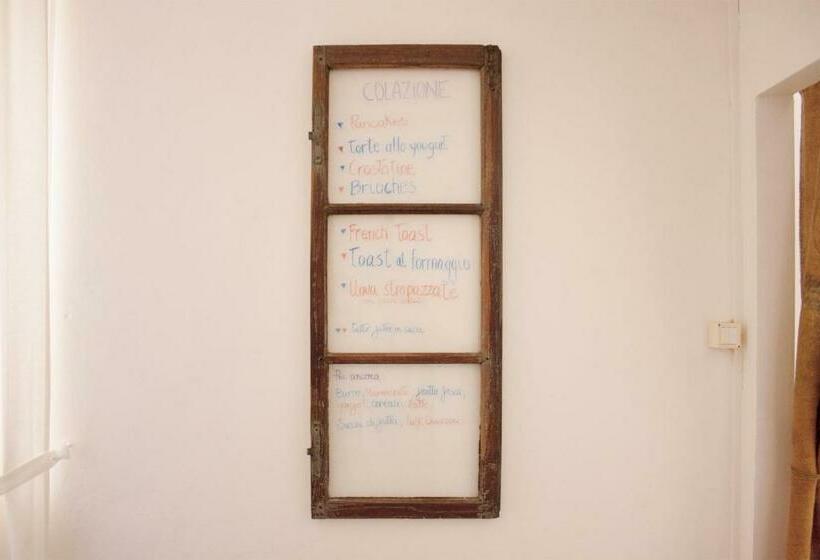 COLAZIONE
Pancakes
Torte allo yogurt
Crostatine
Brioches
French Toast
Toast al formaggio
Uova strapazzate
tutto fatto in casa
Più ancora
Burro, Marmellate, frutta fresca,
yogurt, cereali, latte
Succhi di frutta,